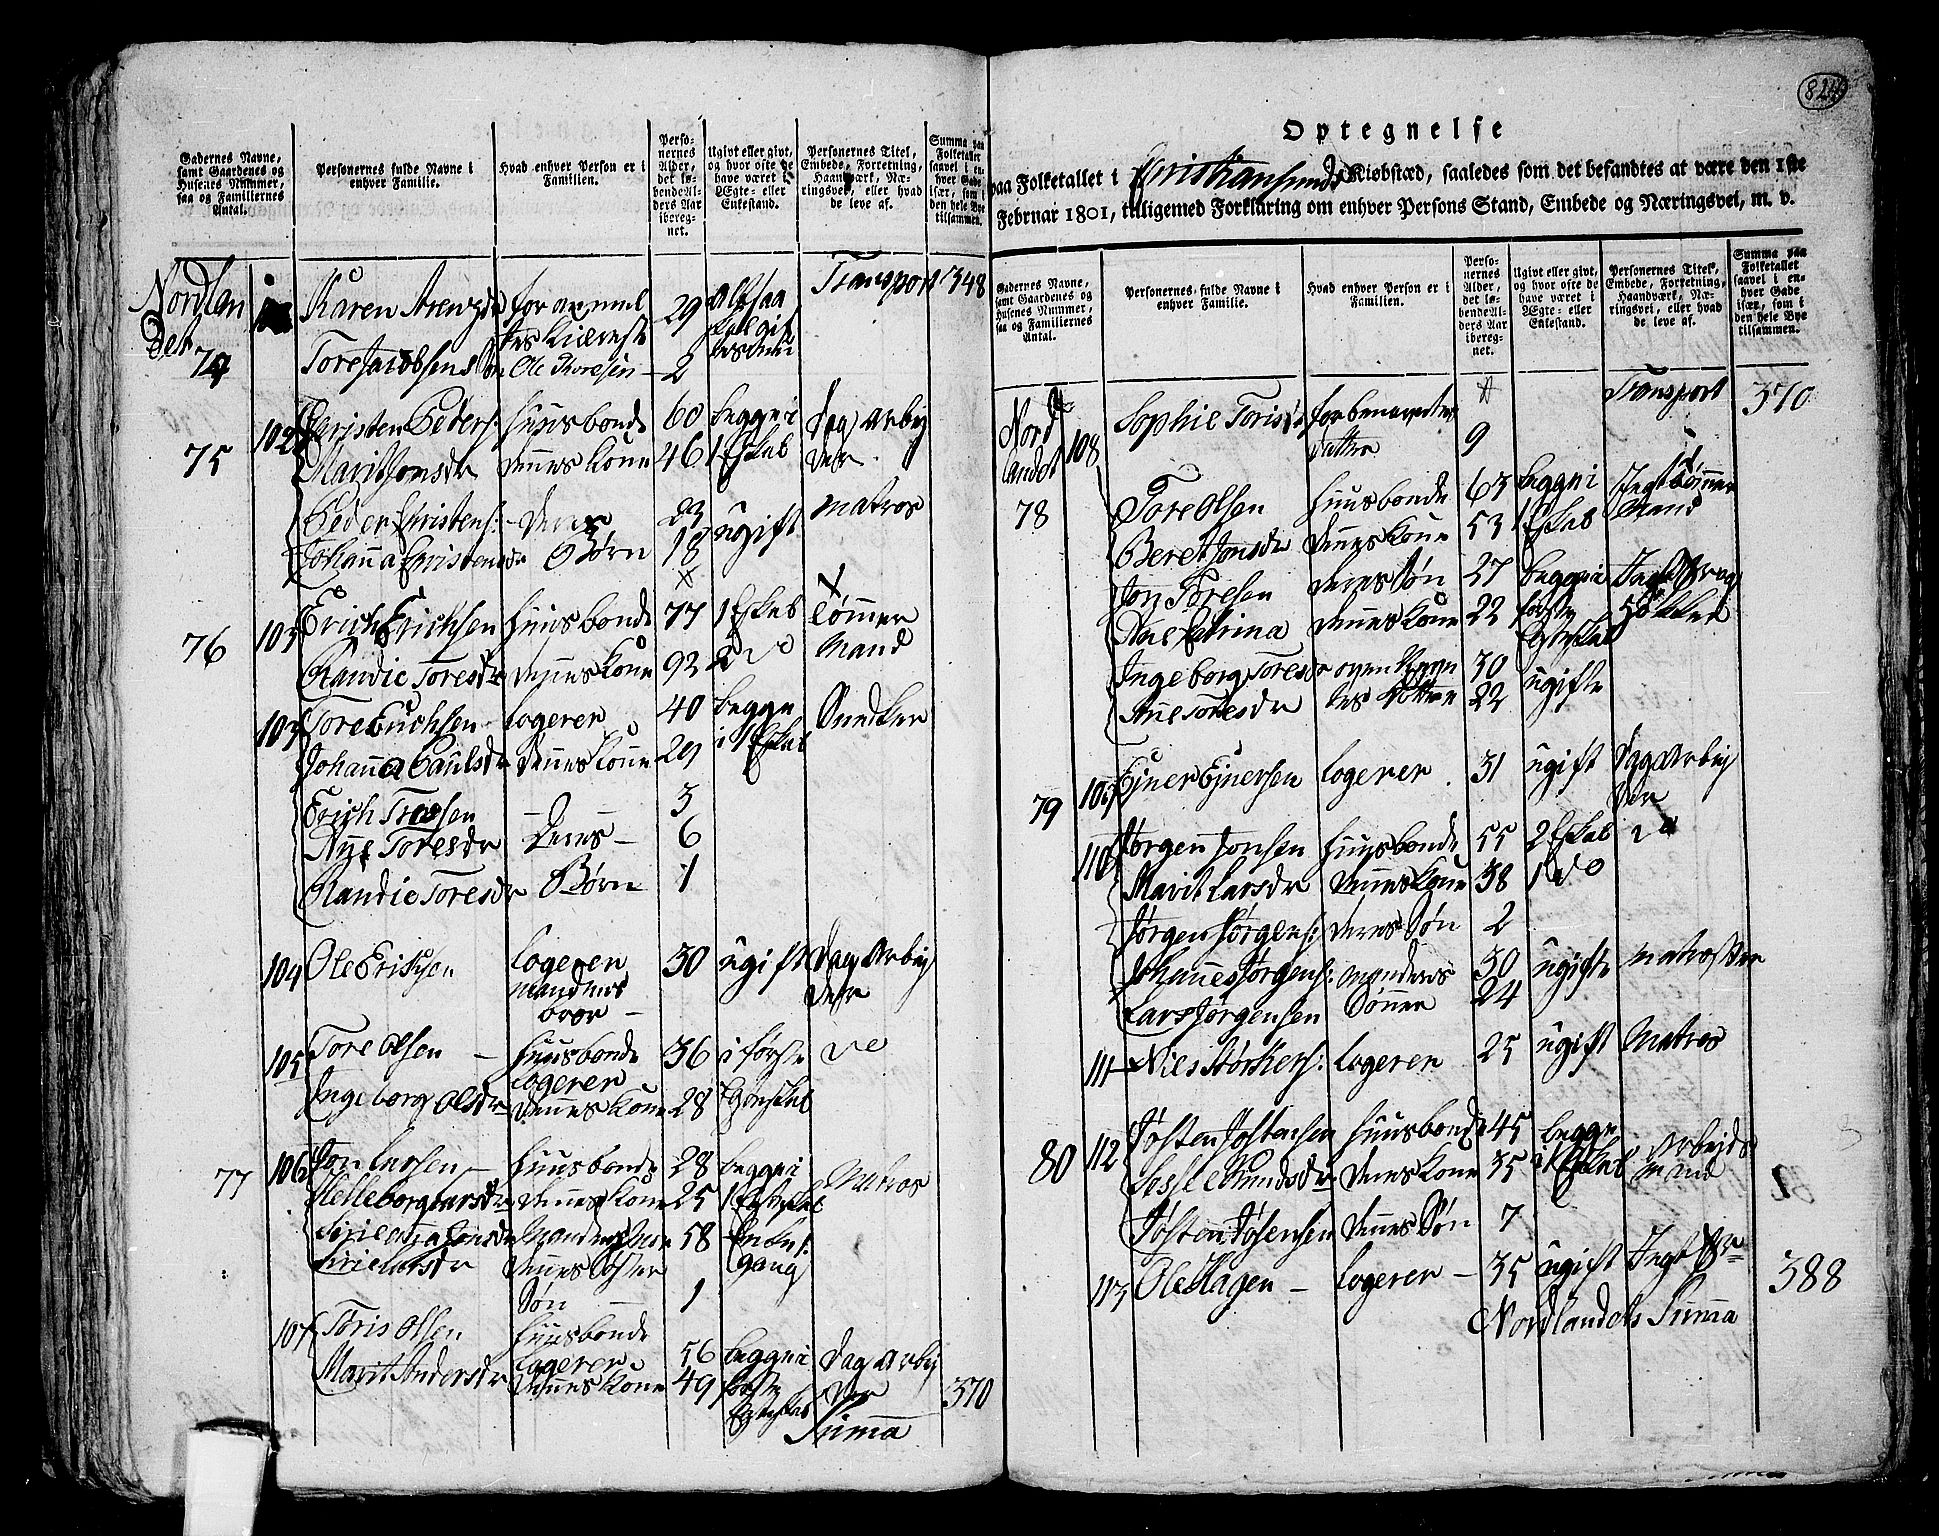 Gadernes Navne,
samt Gaardenes og
Husenes Nummer,
saa og Familiernes
Antal.
Personernes fulde Navne i
enhver Familie.
Hvad enhver Person er i
Familien.
Perso-
nernes
Alder,
det lø-
bende Al-
ders Aar
ibereg-
net.
Ugivt eller givt,
og hvor ofte de
have været i
Ægte- eller
Enkestand.
Personernes Titel,
Embede, Forretning,
Haandværk, Næ-
ringsvei, eller hvad
de leve af.
Summa paa
Folketallet
saavel i en-
hver Gade
især, som i
den hele Bye
tilsammen.
Nordlan
det
Transport 348
74 Karen Arenzdr 29
Tore Jacobsen Ole Toresen 2
75 102 Christen Peders: Huusbonde 60 begge i Dag Arbej
Marit Jonsdr Dennes Kone 46 1 Eskab der
Peder Christens: Deres 23 ugift Matros
Johanna Christensdr Børn 18
76 103 Erich Erichsen Huusbonde 77 1 Eskab Tømmer
Randie Toresdr Dennes Kone 92 2 do Mand
103 Tore Erichsen Logerer 40 begge Snedker
Johanna Paulsdr Dennes Kone 29 i 1 Eskab
Erich Toresen 3
Ane Toresdr Deres 6
Randie Toresdr Børn 1
104 Ole Erichsen Logerer 30 ugift Dag Arbej
mandens der
broer
105 Tore Olsen Huusbonde 36 i første do
Logerer
Ingeborg Olsdr Dennes Kone 28 Egteskab
77 106 Jon Larsen Huusbonde 28 begge i Matros
Helleborg Larsdr Dennes Kone 25 1 Egteskab
58
Dennes Søster gang
Søn 1
107 Toris Olsen Huusbonde
Logerer 56 begge i Dag Arbej
Marit Andersdr Dennes Kone 49 første der
Egteskab 370
Summa
824
Optegnelse
paa Folketallet i Christiansunds Kiøbstæd, saaledes som det befandtes at være den 1ste
Februar 1801, tilligemed Forklaring om enhver Persons Stand, Embede og Næringsvei, m. v.
Gadernes Navne,
samt Gaardenes og
Husenes Nummer,
saa og Familiernes
Antal.
Personernes fulde Navne i
enhver Familie.
Hvad enhver Person er i
Familien.
Perso-
nernes
Alder,
det lø-
bende Al-
ders Aar
ibereg-
net.
Ugivt eller givt,
og hvor ofte de
have været i
Ægte- eller
Enkestand.
Personernes Titel,
Embede, Forretning,
Haandværk, Næ-
ringsvei, eller hvad
de leve af.
Summa paa
Folketallet
saavel i en-
hver Gade
især, som i
den hele Bye
tilsammen.
Transport 370
Nord
landet
108 Sophie Torisdr forbenevntes
datter 9
78 Tore Olsen Huusbonde 63 begge i
Beret Jonsdr Dennes Kone 53 1 Eskab Mand
Jon Toresen Deres Søn 27 begge i
Ane Catrina Dennes Kone 22 første
Egteskab
Ingeborg Toresdr 30 ugifte
Ane Toresdr 22
79 109 Ejner Ejnersen Logerer 31 ugift Dag Arbej
der
110 Jørgen Jonsen Huusbonde 55 2 Eskab do
Marit Larsdr Dennes Kone 38 1 do
Jørgen Jørgens: Deres Søn 2
Johannes Jørgens: Mandens 30 ugifte Matroser
Lars Jørgensen Sønner 24
111 Niels Logerer 25 ugift Matros
80 112 Josten Jostensen Huusbonde 45 begge Arbejds
Dennes Kone 35 i 1 Eskab Mand
Dennes Søn 7
113 Ole Hagen Logerer 35 ugift
388
Nordlandets Summa